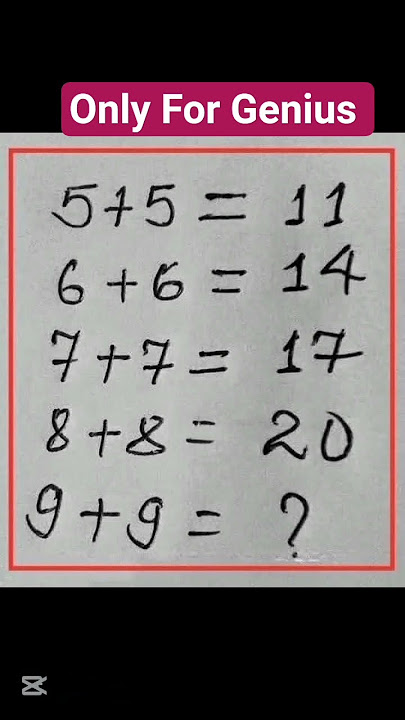 Only For Genius
5+5 = 11
6+6 = 14
7+7 = 17
8+8 = 20
9+9 = ?